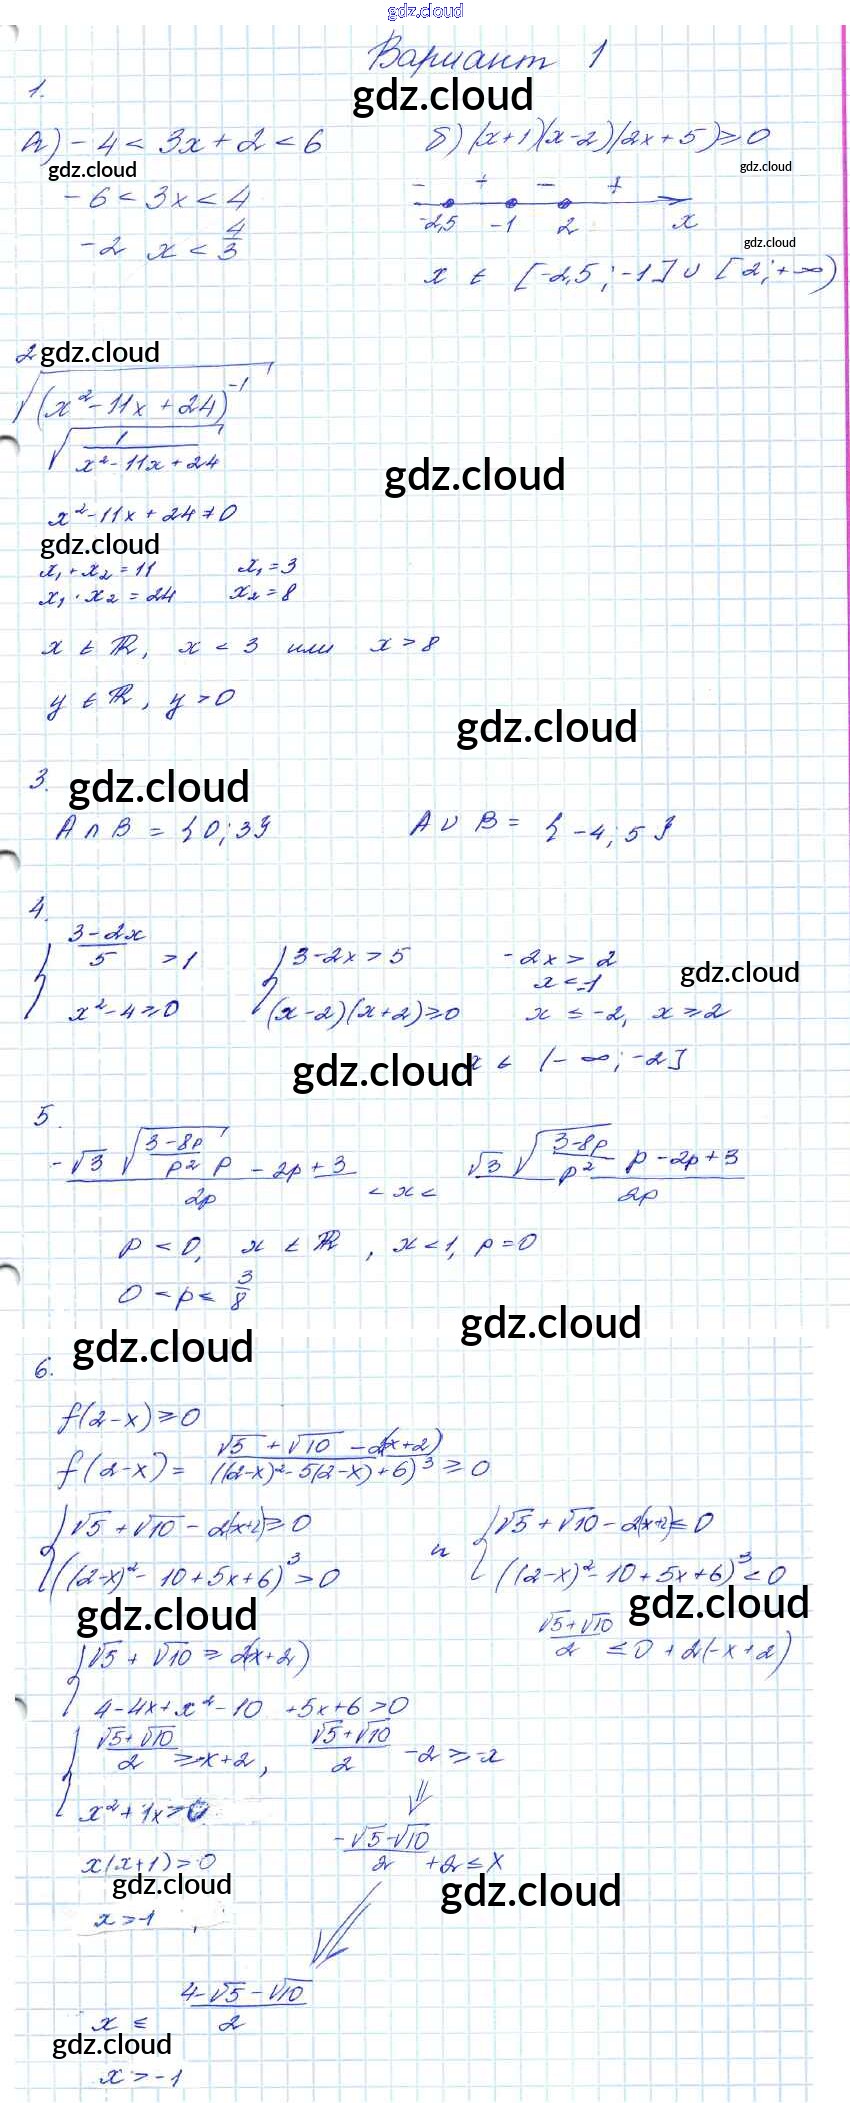 gdz.cloud
Вариант 1
gdz.cloud
1.
а) -4 < 3x + 2 < 6
gdz.cloud
-6 < 3x < 4
-2 x < 4/3
б) (x+1)(x-2)(2x+5) ≥ 0
gdz.cloud
- + - +
-2,5 -1 2 x
gdz.cloud
x ∈ [-2,5; -1] ∪ [2; +∞)
2 gdz.cloud
√(x² - 11x + 24)⁻¹
√(1/(x² - 11x + 24))
gdz.cloud
x² - 11x + 24 ≠ 0
gdz.cloud
x₁ + x₂ = 11 x₁ = 3
x₁ · x₂ = 24 x₂ = 8
x ∈ ℝ, x < 3 или x > 8
y ∈ ℝ, y > 0
gdz.cloud
3. gdz.cloud
A ∩ B = {0; 3} A ∪ B = {-4; 5}
4.
{ (3-2x)/5 > 1 { 3-2x > 5 -2x > 2
x < -1
gdz.cloud
x² - 4 ≥ 0 (x-2)(x+2) ≥ 0 x ≤ -2, x ≥ 2
gdz.cloud
x ∈ (-∞; -2]
5.
(-√3 √((3-8p)/p²) p - 2p + 3)/2p < x < (√3 √((3-8p)/p²) p - 2p + 3)/2p
p < 0, x ∈ ℝ, x < 1, p = 0
0 < p ≤ 3/8
gdz.cloud
gdz.cloud
6.
f(2-x) ≥ 0
f(2-x) = (√5 + √10 - 2(x+2))/((2-x)² - 5(2-x) + 6)³ ≥ 0
{ √5 + √10 - 2(x+2) ≥ 0 и { √5 + √10 - 2(x+2) ≤ 0
((2-x)² - 10 + 5x + 6)³ > 0 ((2-x)² - 10 + 5x + 6)³ < 0
gdz.cloud
gdz.cloud
(√5 + √10)/2 ≤ 0 + 2(-x+2)
{ √5 + √10 ≥ 2(x+2)
4 - 4x + x² - 10 + 5x + 6 > 0
{ (√5 + √10)/2 ≥ -x + 2, (√5 + √10)/2 - 2 ≥ -x
x² + 1x > 0
(-√5 - √10)/2 + 2 ≤ x
x(x+1) > 0
gdz.cloud
gdz.cloud
x > -1,
x ≤ (4 - √5 - √10)/2
gdz.cloud
x > -1